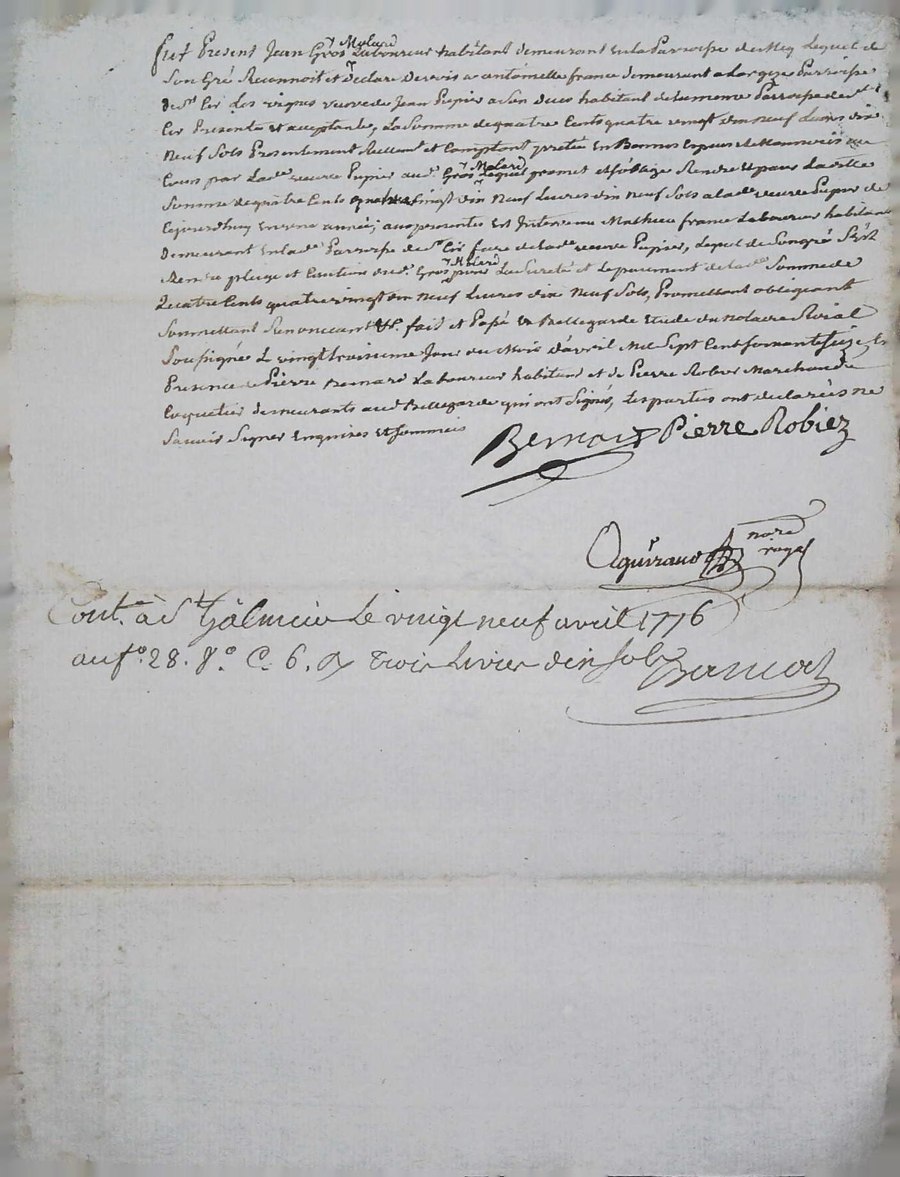 fut Present Jean Gros y Molard Laboureur habitant demeurant en la Parroisse de Lequel de
Son Gré Reconnoit et déclare devoir a antoinette france demeurant a Parroisse
de st Cir Les vignes veuve de Jean Pupier a Son vivant habitant de la meme Parroisse de st
Cir Presente et acceptante, La Somme de quatre Cents quatre vingt dix neuf Livres dix
Neuf Sols Presentement Reellemt et Comptant pretée en Bonnes Especes et Monnoies au
Cours par Lade veuve Pupier aud Gros y Molard Lequel promet et s'oblige Rendre et payer La dite
Somme de quatre Cents quatre vingt dix Neuf Livres dix neuf Sols a lade veuve Pupier de
Cejourdhuy en une année, aux presentes Est Intervenu Mathieu france Laboureur habitant
Demeurant en lade Parroisse de st Cir frere de lade veuve Pupier, Lequel de Son gré S'est
Rendu pleige et Caution dud. Gros y Molard pour La Sureté et Le payement de lade Somme de
Quatre Cents quatre vingt dix neuf Livres dix Neuf Sols, Promettant obligeant
Soumettant Renonceant &c. fait et Passé a Bellegarde Etude du Notaire Roial
Soussigné Le vingt troisieme Jour du Mois d'avril Mil Sept Cent soixante seize En
Presence de Pierre Bernard Laboureur habitant et de Pierre Robier Marchand
Coquetier demeurants aud Bellegarde qui ont Signé, Les parties ont declarées ne
Savoir Signer Enquises et Sommées
Bernard Pierre Robiez
Aguiraud nore
royal
Cont. à st Galmier Le vingt neuf avril 1776
au fo. 28. Vo. C. 6. Trois Livres dix sols